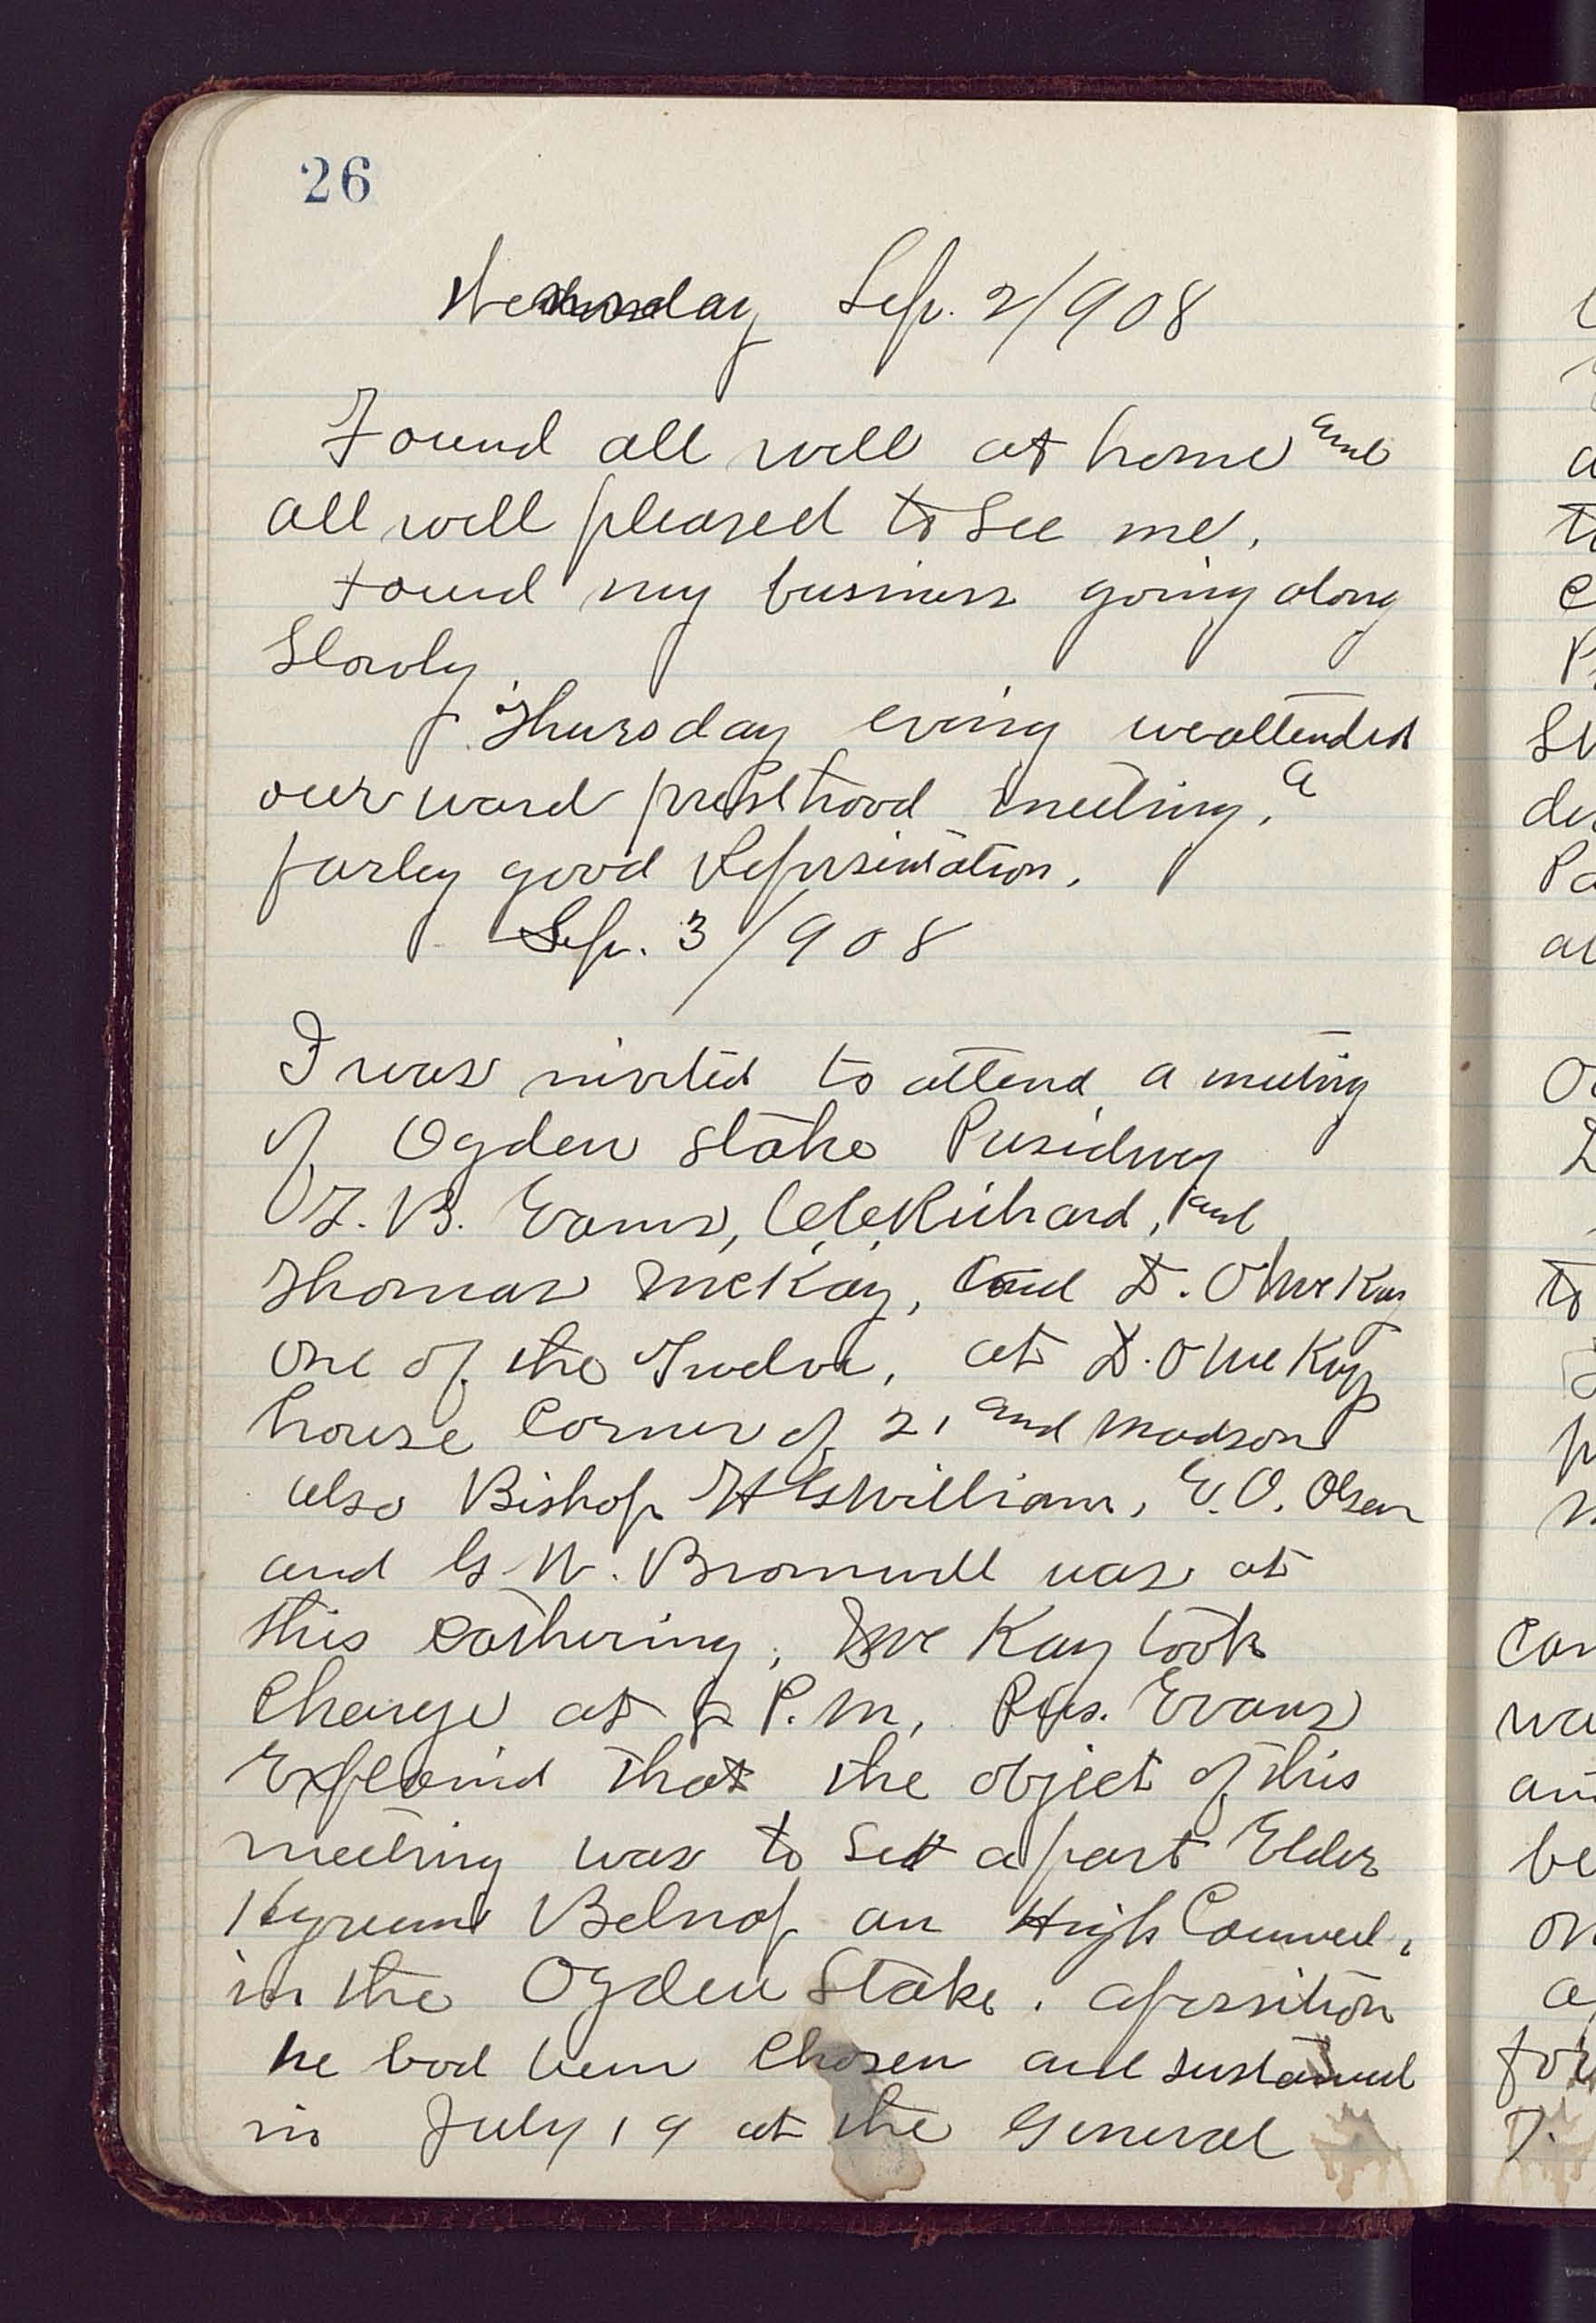 26
Wednesday Sep. 2/908
Found all well at home and
all well pleased to See me.
Found my business going along
Slowly
Thursday eving we attended
our ward presthood meeting, a
farley good Represintation.
Sep. 3/908
I was invited to attend a meeting
of Ogden Stake Presidncy
T. B. Evans, C, C, Richard, and
Thomas McKay, and D. O McKay
one of the Twelve, at D. O McKays
house Corner of 21 and Madson
also Bishop H G William, E. O. Olsen
and G W. Bromwell was at
this Gathering, McKay took
Charge at P.M, Pres. Evans
Explaind that the object of this
meeting was to Set apart Elder
Hyrum Belnap an High Councel,
in the Ogden Stake. aposition
he had been Chosen and sustained
in July 19 at the General